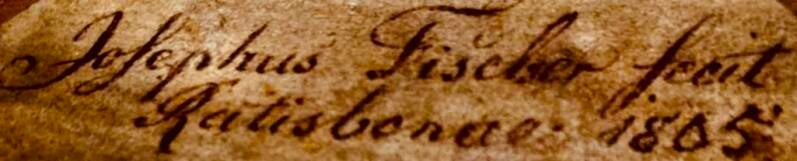 Josephus Fischer fecit
Ratisbonae 1805